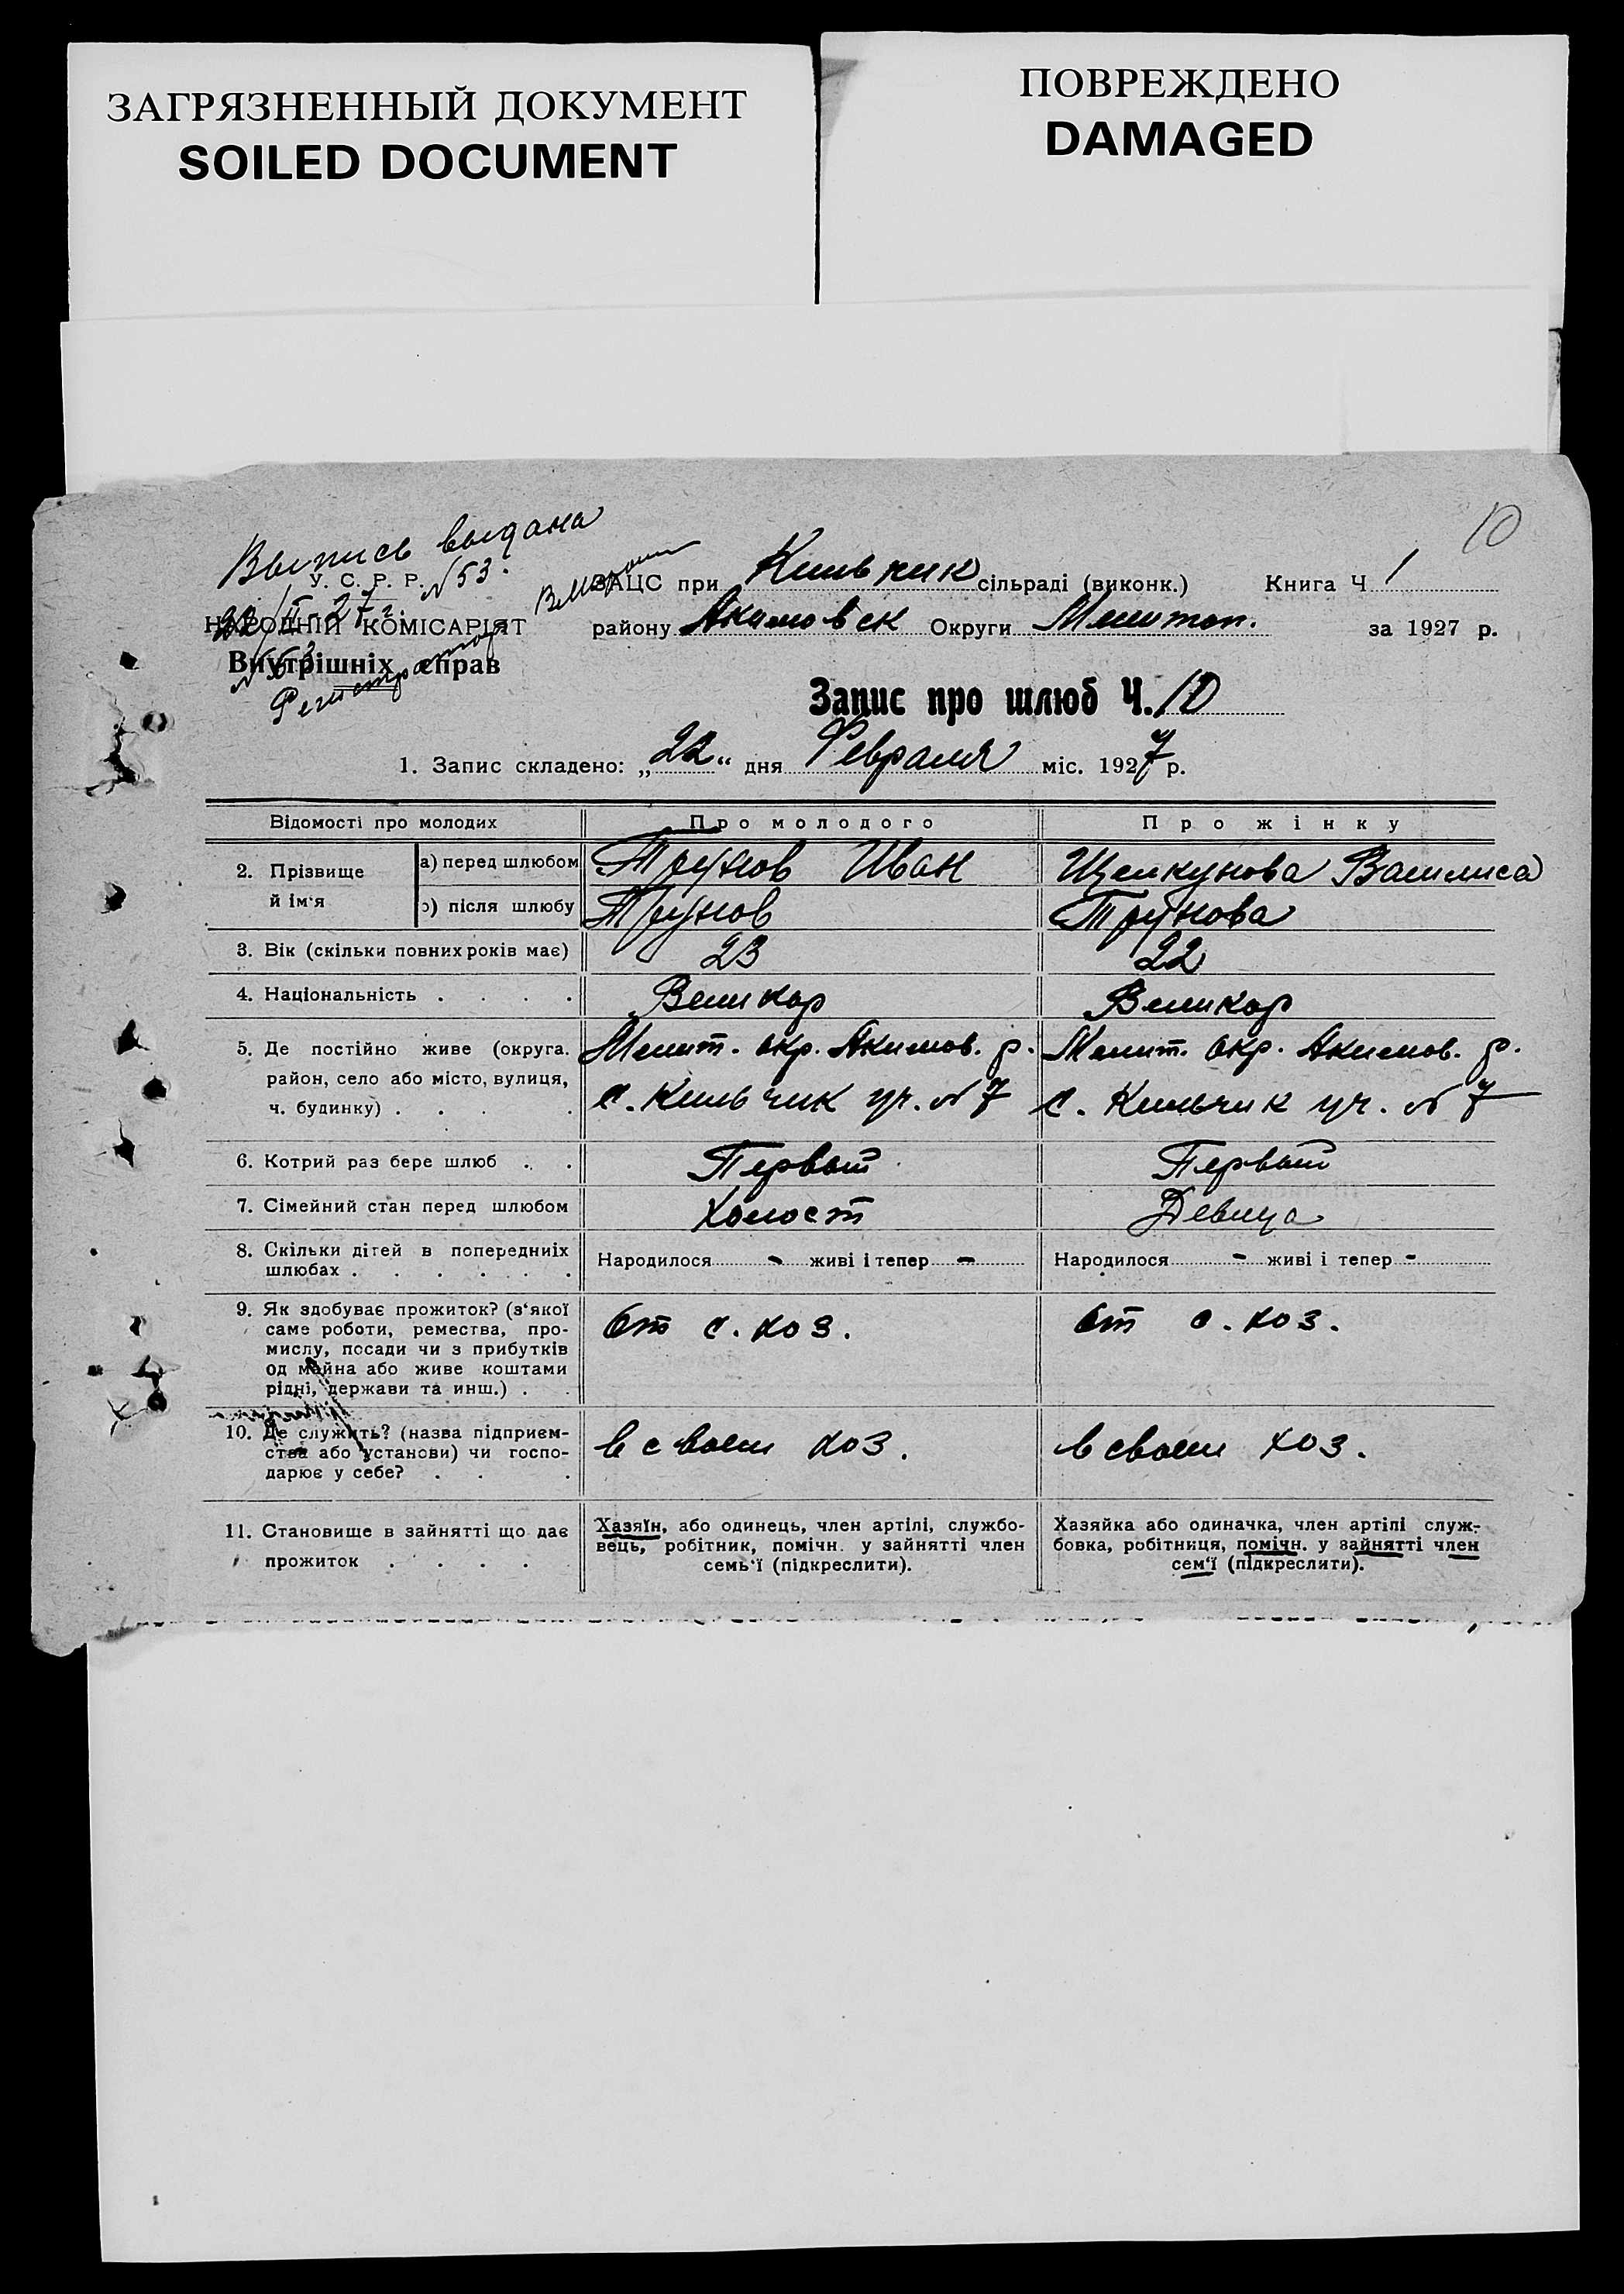 ЗАГРЯЗНЕННЫЙ ДОКУМЕНТ
SOILED DOCUMENT
ПОВРЕЖДЕНО
DAMAGED
10
Выпись выдана
У. С. Р. Р. N 53.
22/II-27 г.
НАРОДНІЙ КОМІСАРІЯТ
Внутрішніх справ
N 53
Регистратор
ЗАЦС при Кильчик сільраді (виконк.) Книга Ч 1
району Акимовск Округи Мелитоп. за 1927 р.
Запис про шлюб Ч. 10
1. Запис складено: „22“ дня Февраля міс. 1927 р.
Відомості про молодих
Про молодого
Про жінку
2. Прізвище й ім‘я
а) перед шлюбом Трунов Иван Щелкунова Василиса
б) після шлюбу Трунов Трунова
3. Вік (скільки повних років має) 23 22
4. Національність . . . . Великор Великор
5. Де постійно живе (округа. район, село або місто, вулиця, ч. будинку) . . . .
Мелит. окр. Акимов. р.
с. Кильчик уч. N 7
Мелит. окр. Акимов. р.
с. Кильчик уч. N 7
6. Котрий раз бере шлюб . . Первый Первый
7. Сімейний стан перед шлюбом Холост Девица
8. Скільки дітей в попередниіх
шлюбах . . . . . .
Народилося - живі і тепер -
Народилося - живі і тепер -
9. Як здобуває прожиток? (з‘якої
саме роботи, ремества, про-
мислу, посади чи з прибутків
од майна або живе коштами
рідні, держави та инш.) . .
От с. хоз.
От с. хоз.
10. Де служить? (назва підприєм-
ства або установи) чи госпо-
дарює у себе? . . .
в своем хоз.
в своем хоз.
11. Становище в зайнятті що дає
прожиток . . . .
Хазяїн, або одинець, член артілі, службо-
вець, робітник, помічн. у зайнятті член
семь‘ї (підкреслити).
Хазяйка або одиначка, член артілі служ-
бовка, робітниця, помічн. у зайнятті член
сем‘ї (підкреслити).